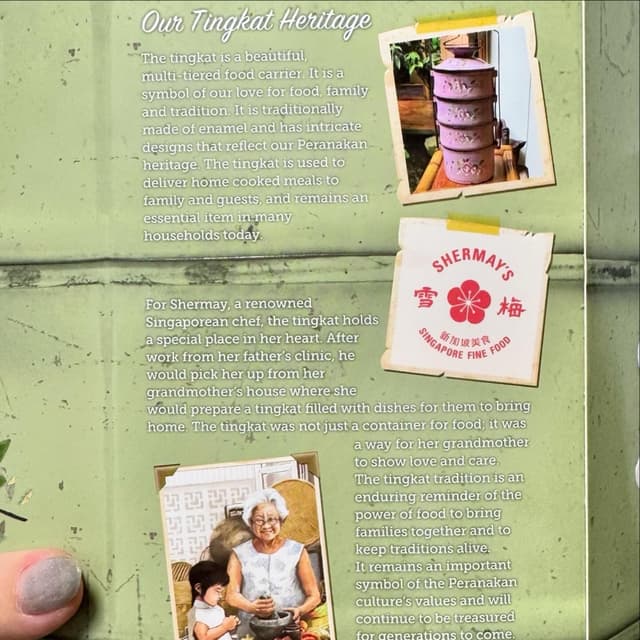 Our Tingkat Heritage
The tingkat is a beautiful,
multi-tiered food carrier. It is a
symbol of our love for food, family
and tradition. It is traditionally
made of enamel and has intricate
designs that reflect our Peranakan
heritage. The tingkat is used to
deliver home cooked meals to
family and guests, and remains an
essential item in many
households today.
SHERMAY'S
雪 梅
新加坡美食
SINGAPORE FINE FOOD
For Shermay, a renowned
Singaporean chef, the tingkat holds
a special place in her heart. After
work from her father's clinic, he
would pick her up from her
grandmother's house where she
would prepare a tingkat filled with dishes for them to bring
home. The tingkat was not just a container for food; it was
a way for her grandmother
to show love and care.
The tingkat tradition is an
enduring reminder of the
power of food to bring
families together and to
keep traditions alive.
It remains an important
symbol of the Peranakan
culture's values and will
continue to be treasured
for generations to come.